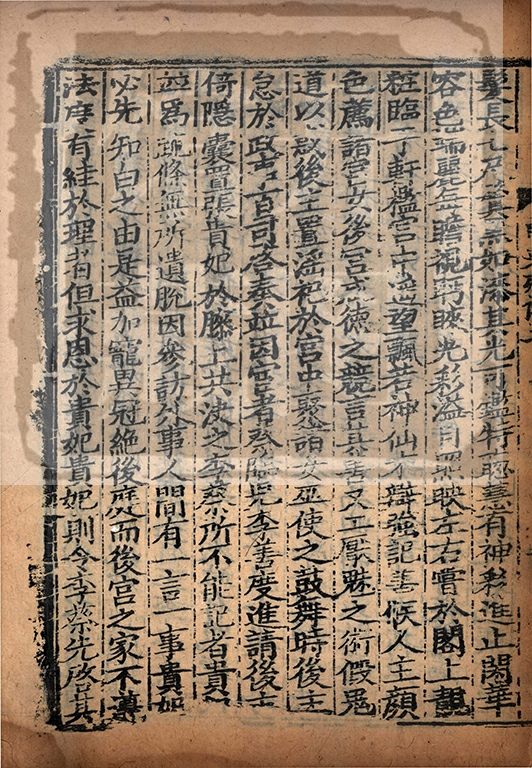 髮長七尺鬒黑如漆其光可鑑特聰慧有神彩進止閑華
容色端麗每瞻視眄睞光彩溢目照映左右嘗於閣上靚
粧臨于軒檻宮中遥望飄若神仙才辯強記善候人主顏
色薦諸宮女後宮咸德之競言其善又工厭魅之術假鬼
道以惑後主置滛祀於宮中聚諸女巫使之鼓舞時後主
怠於政事百司啓奏並因宦者蔡臨兒李善度進請後主
倚隱囊置張貴妃於膝上共決之李蔡所不能記者貴妃
並爲疏條無所遺脫因參訪外事人間有一言一事貴妃
必先知白之由是益加寵異冠絶後庭而後宮之家不遵
法度有絓於理者但求恩於貴妃貴妃則令李蔡先啓其